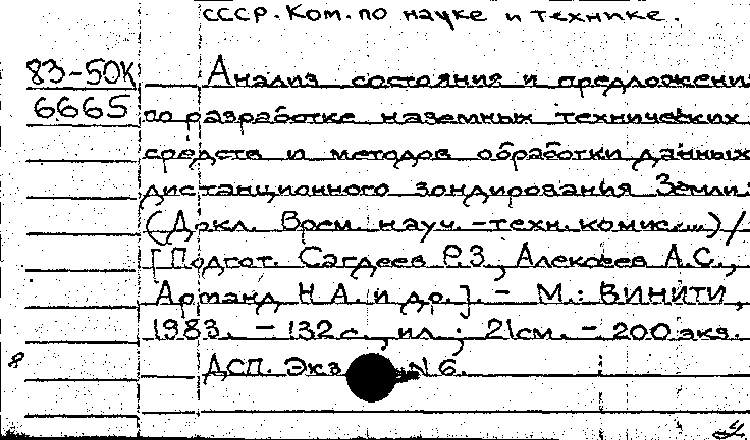 СССР. Ком. по науке и технике.
83-50К Анализ состояния и предложения
6665 по разработке наземных технических
средств и методов обработки данных
дистанционного зондирования Земли:
(Докл. Врем. науч.-техн. комис...) /
[Подгот. Сагдеев Р.З., Алексеев А.С.,
Арманд Н.А. и др.]. - М.: ВИНИТИ,
1983. - 132 с., ил.; 21 см. - 200 экз.
8 ДСП. Экз N 6.